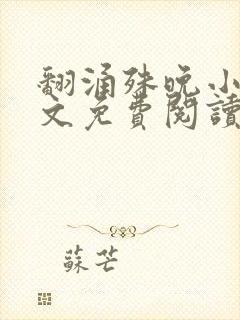 翻涌殊晚小
文免費閱讀
蘇芒